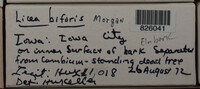 Licea biforis Morgan
826041
Iowa: Iowa City
on inner surface of bark separated
from cambium - standing dead tree
1,018 26 August 72
Det